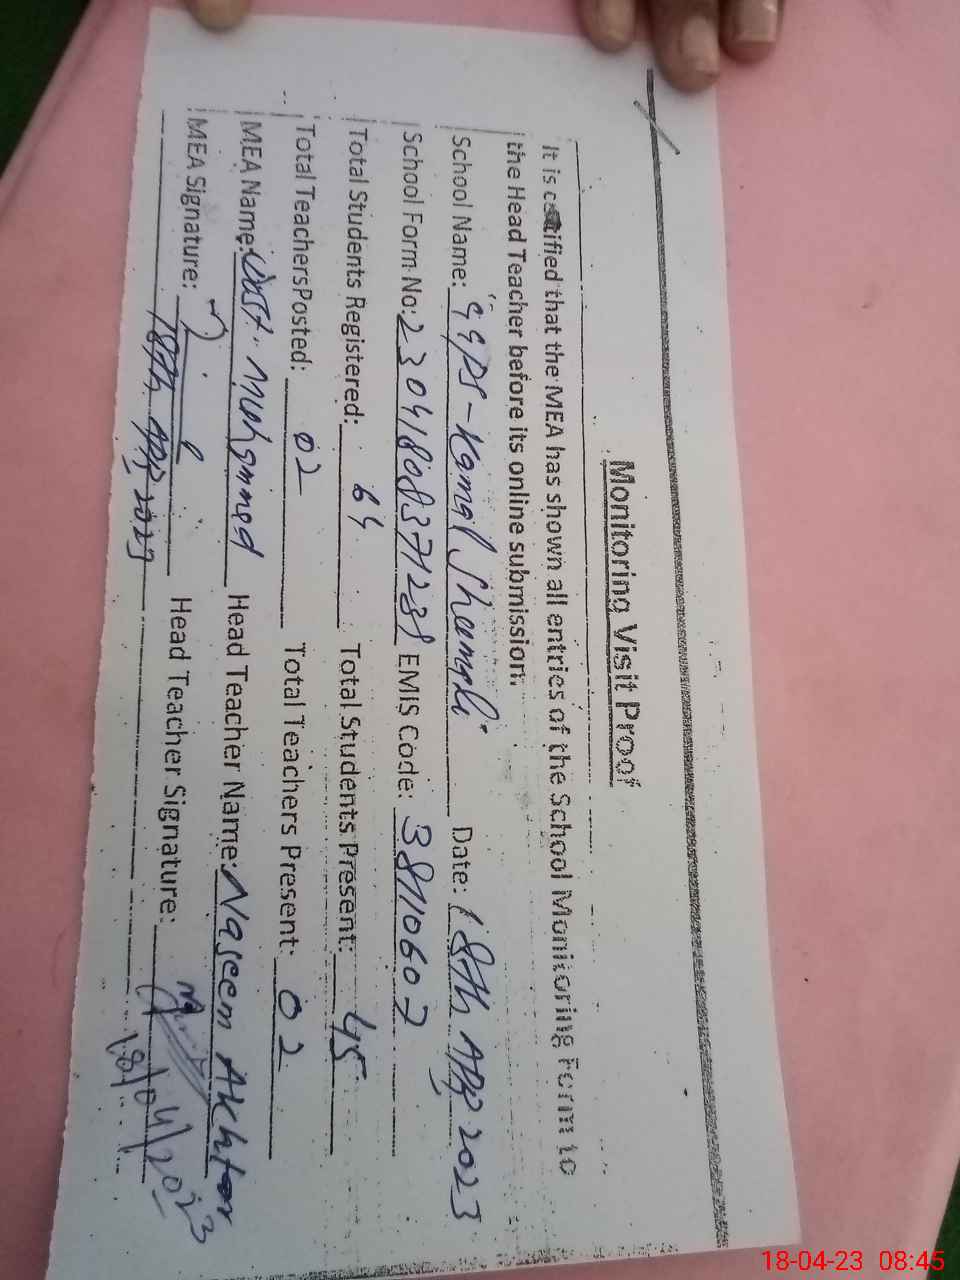 Monitoring Visit Proof
It is certified that the MEA has shown all entries of the School Monitoring Form to
the Head Teacher before its online submission.
School Name: GGPS-Kamal Shumali Date: 18th Apr, 2023
School Form No: EMIS Code: 38710607
Total Students Registered: 64 Total Students Present: 45
Total Teachers Posted: 02 Total Teachers Present: 02
MEA Name: Dost Muhammed Head Teacher Name: Naseem Akhtar
MEA Signature: Head Teacher Signature:
18th Apr, 2023 18/04/2023
18-04-23 08:45